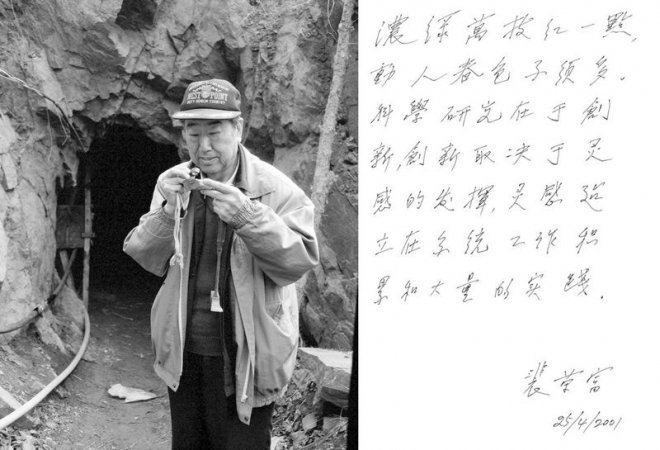 濃綠萬枝红一點,
動人春色不須多.
科學研究在于創
新,創新取决于灵
感的发揮,灵感建
立在系统工作积
累和大量的实踐.
裴荣富
25/4/2001
POINT